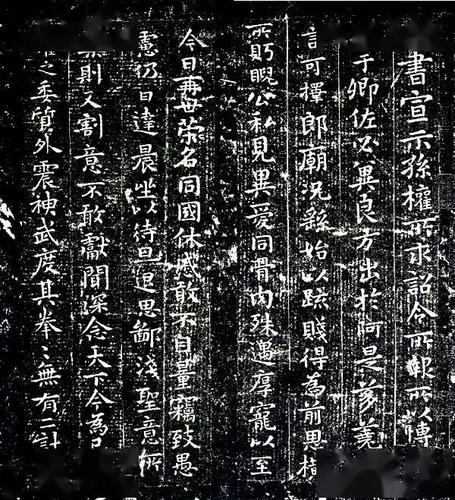 書宣示孫權所求詔令所報所以博
于卿佐必冀良方出於阿是芻蕘
言可擇郎廟況繇始以疏賤得為前恩橫
所盻睨公私見異愛同骨肉殊遇厚寵以至
今日再世榮名同國休慼敢不自量竊致愚
慮仍日達晨坐以待旦退思鄙淺聖意所
則又割意不敢獻聞深念天下今為
之委質外震神武度其拳〻無有二計